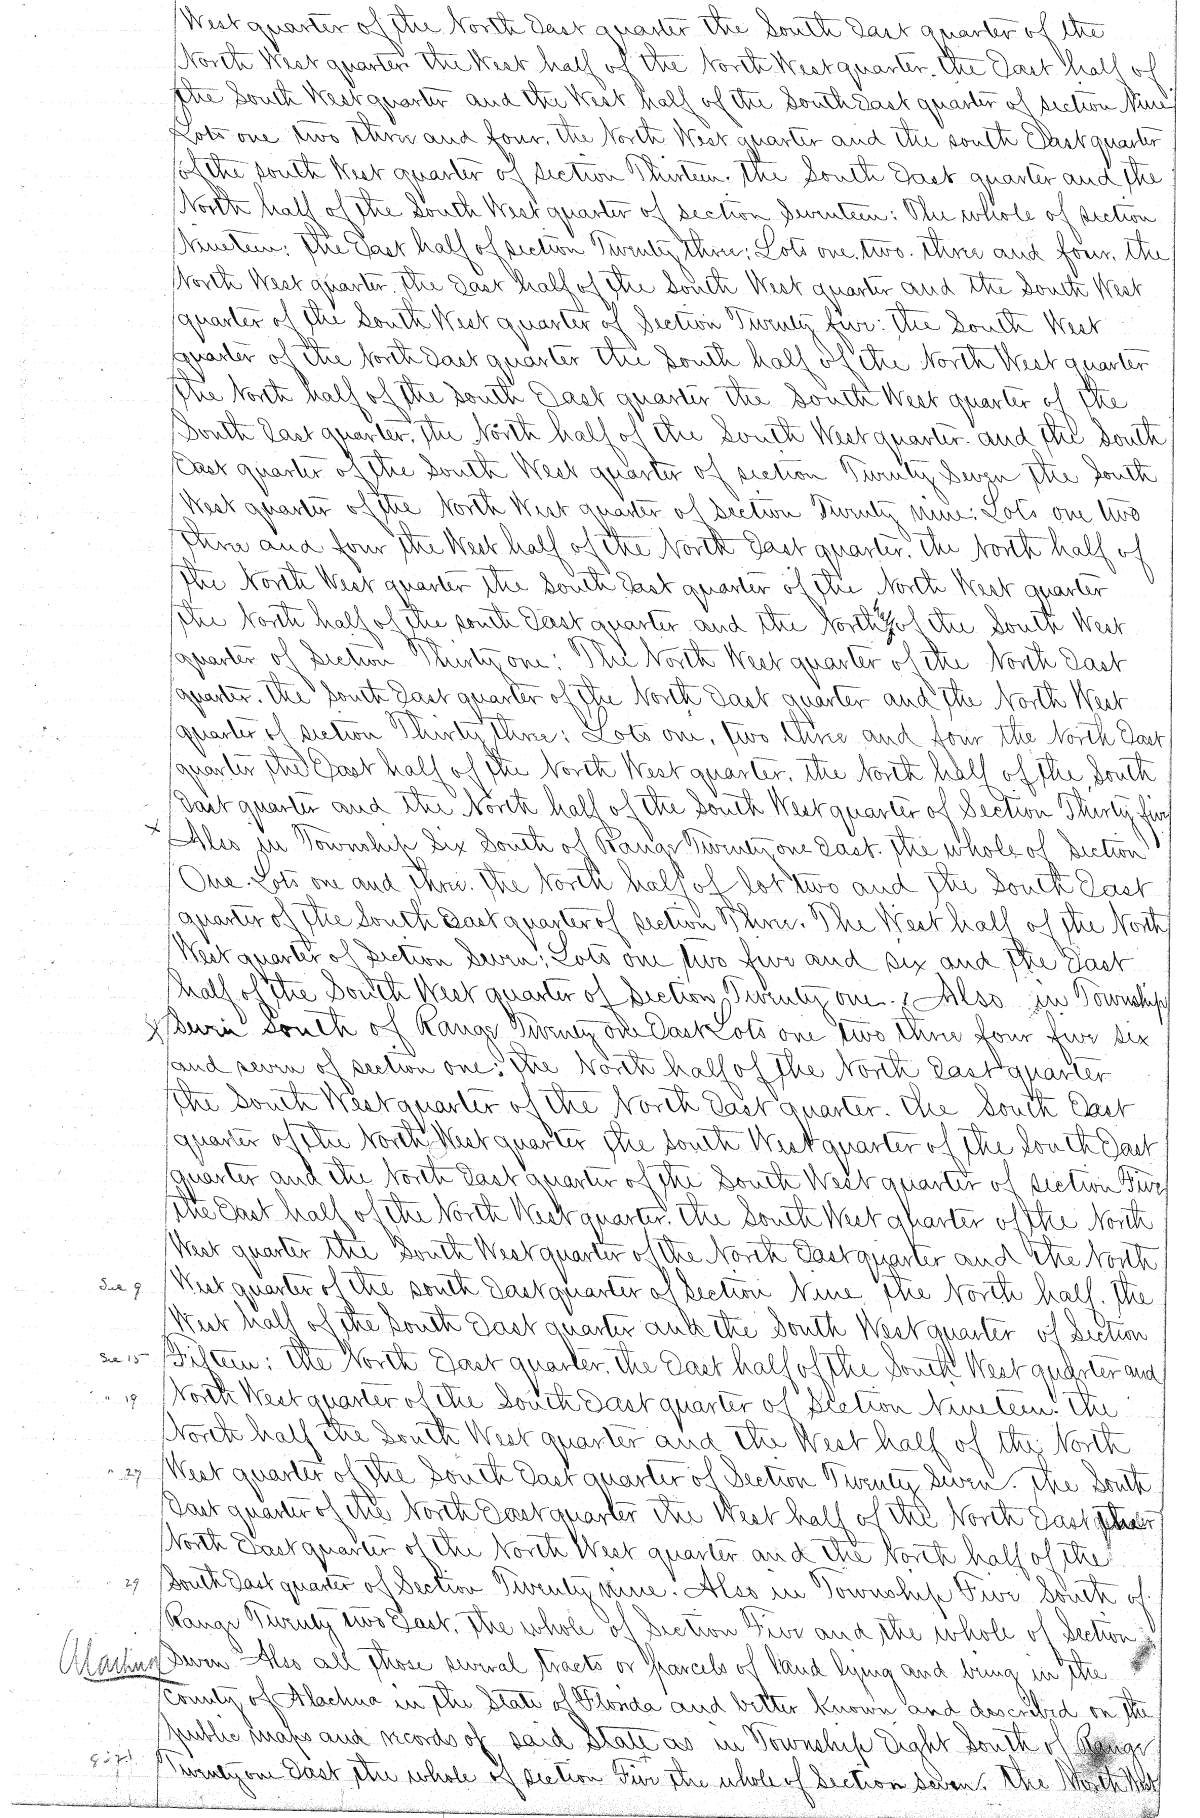 West quarter of the North East quarter the South East quarter of the
North West quarter the West half of the North West quarter. the East half of
the South West quarter and the West half of the South East quarter of section Nine
Lots one two three and four, the North West quarter and the south East quarter
of the south West quarter of section Thirteen. the South East quarter and the
North half of the South West quarter of section Seventeen: The whole of section
Nineteen: the East half of section Twenty three: Lots one, two. three and four, the
North West quarter. the East half of the South West quarter and the South West
quarter of the South West quarter of Section Twenty five: the South West
quarter of the North East quarter the South half of the North West quarter
the North half of the South East quarter the South West quarter of the
South East quarter, the North half of the South West quarter. and the South
East quarter of the South West quarter of section Twenty Seven the South
West quarter of the North West quarter of section Twenty nine: Lots one two
three and four the West half of the North East quarter. the North half of
the North West quarter the South East quarter of the North West quarter
the North half of the south East quarter and the North half of the South West
quarter of Section Thirty one: The North West quarter of the North East
quarter. the South East quarter of the North East quarter and the North West
quarter of section Thirty three: Lots one, two three and four the North East
quarter the East half of the North West quarter. the North half of the South
East quarter and the North half of the South West quarter of Section Thirty five
x Also in Township Six South of Range Twenty one East. the whole of Section
One. Lots one and three. the North half of lot two and the South East
quarter of the South East quarter of section Three. The West half of the North
West quarter of Section Seven: Lots one two five and six and the East
half of the South West quarter of Section Twenty one. Also in Township
x Seven South of Range Twenty one East Lots one two three four five six
and seven of section one: the North half of the North East quarter
the South West quarter of the North East quarter. the South East
quarter of the North West quarter the south West quarter of the South East
quarter and the North East quarter of the South West quarter of section Five
the East half of the North West quarter. the South West quarter of the North
West quarter the South West quarter of the North East quarter and the North
Sec 9 West quarter of the south East quarter of Section Nine the North half. the
West half of the South East quarter and the South West quarter of Section
Sec 15 Fifteen: the North East quarter. the East half of the South West quarter and
" 19 North West quarter of the South East quarter of Section Nineteen: the
North half the South West quarter and the West half of the North
" 27 West quarter of the South East quarter of Section Twenty Seven. the South
East quarter of the North East quarter the West half of the North East
North East quarter of the North West quarter and the North half of the
" 29 South East quarter of Section Twenty nine. Also in Township Five South of
Range Twenty two East. the whole of Section Five and the whole of Section
Alachua Seven Also all those several tracts or parcels of land lying and being in the
county of Alachua in the State of Florida and better known and described on the
public maps and records of said State as in Township Eight South of Range
Twenty one East the whole of section Five the whole of Section seven. the North West